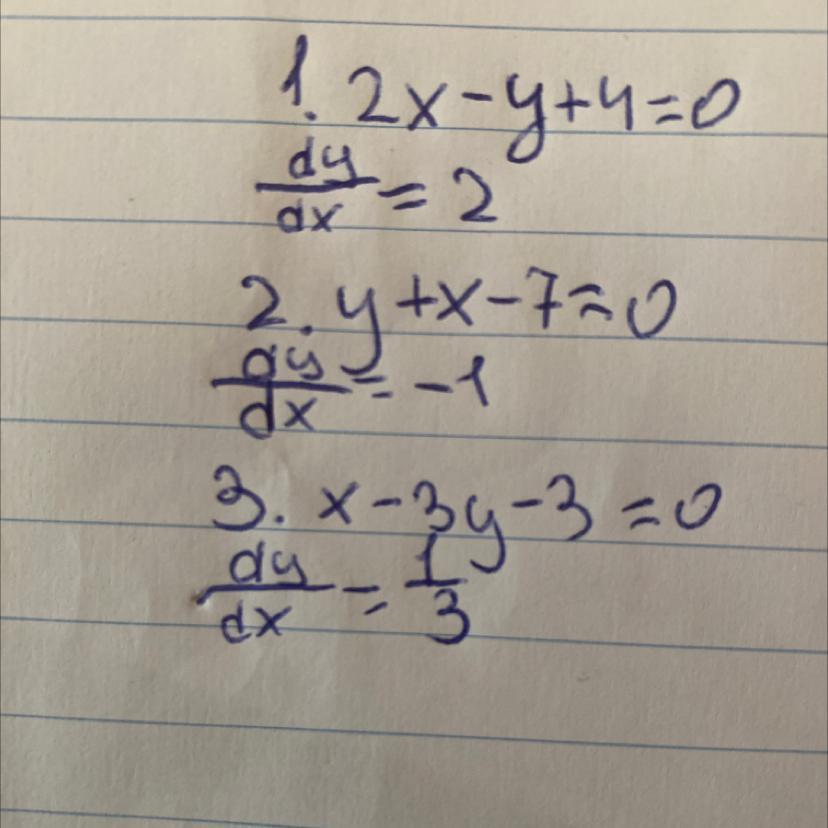 1. 2x-y+4=0
dy/dx = 2
2. y+x-7=0
dy/dx = -1
3. x-3y-3=0
dy/dx = 1/3